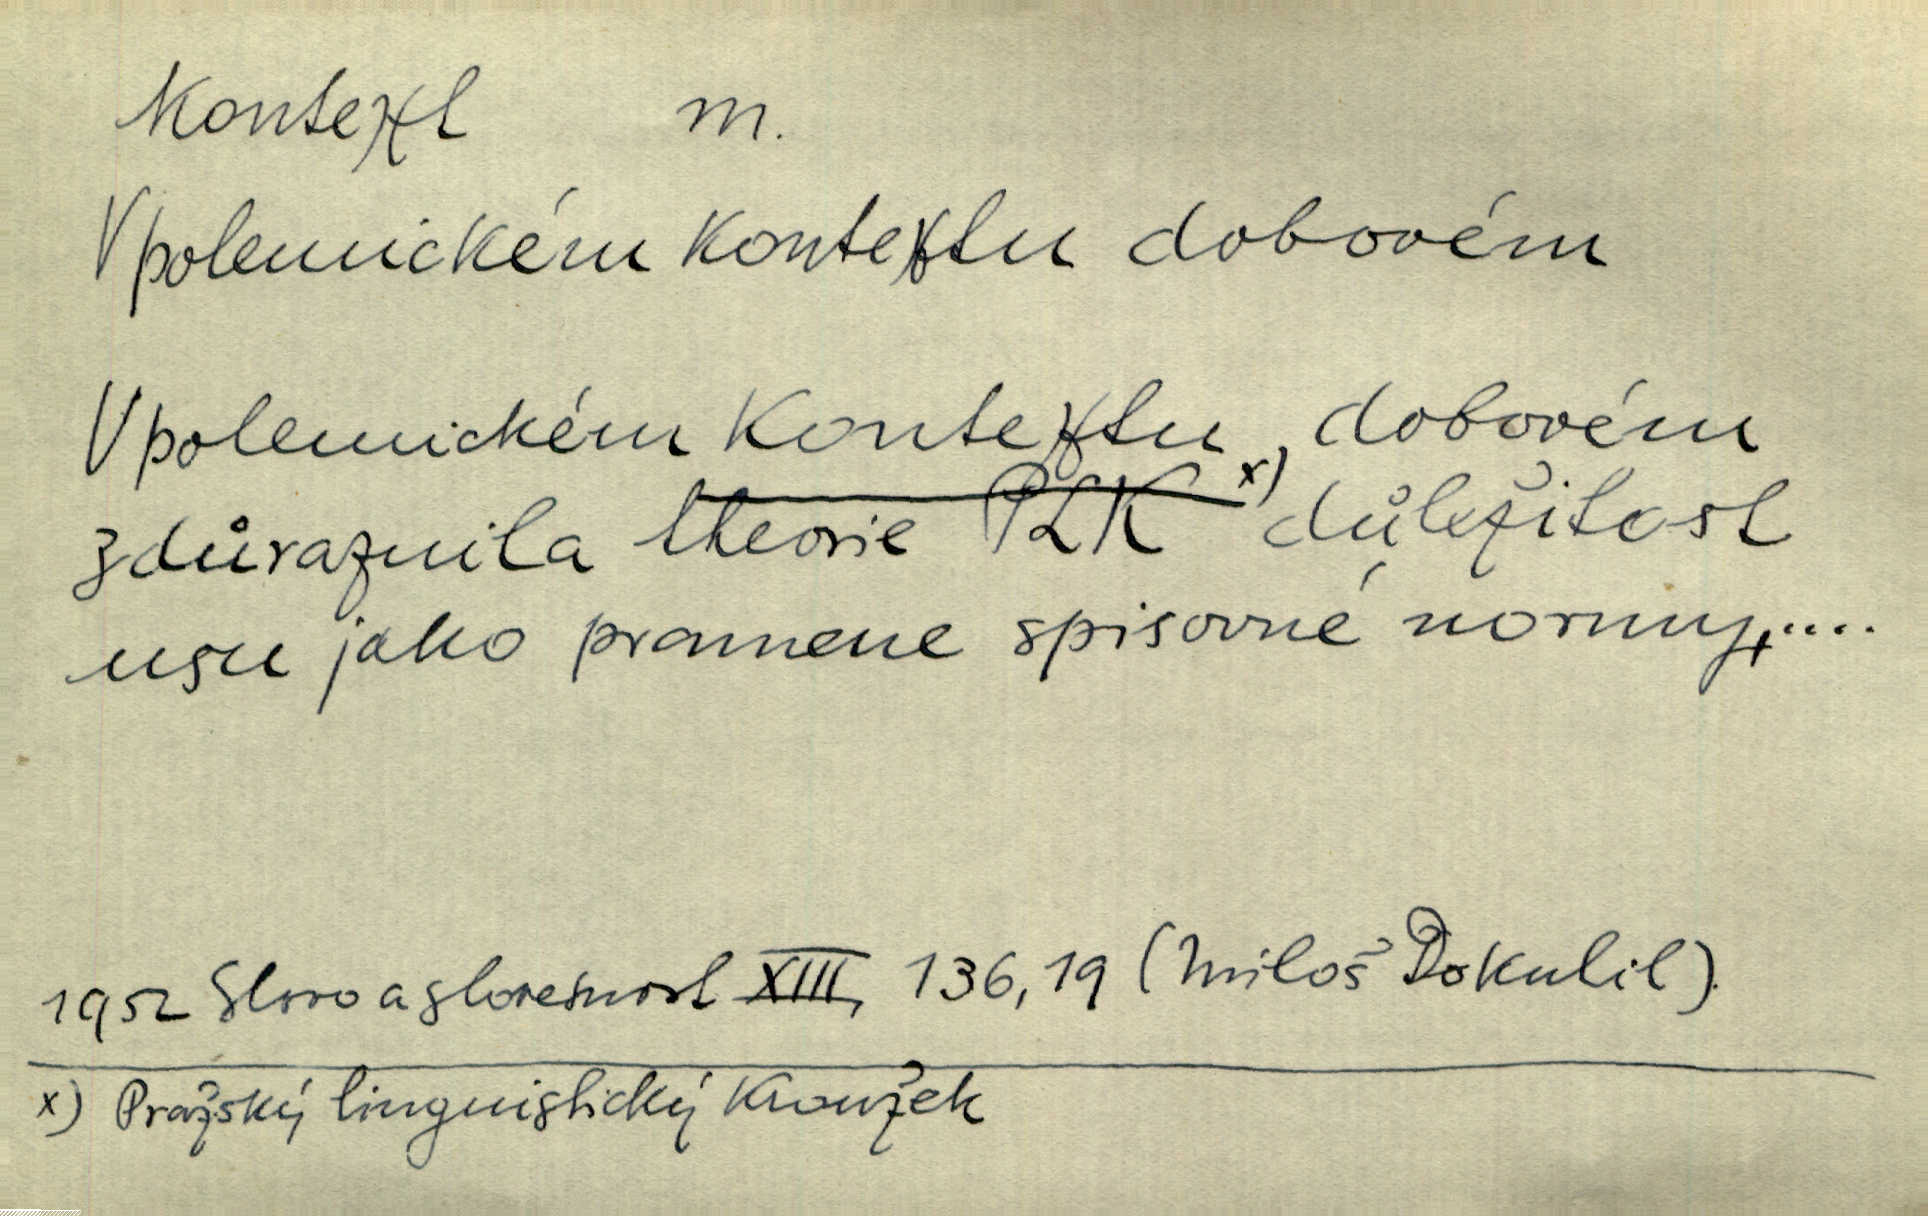 Kontext m.
V polemickém kontextu dobovém
V polemickém kontextu, dobovém
zdůraznila theorie PLK x) důležitost
usu jako pramene spisovné normy,....
1952 Slovo a slovesnost XIII, 136,19 (Miloš Dokulil).
x) Pražský linguistický kroužek